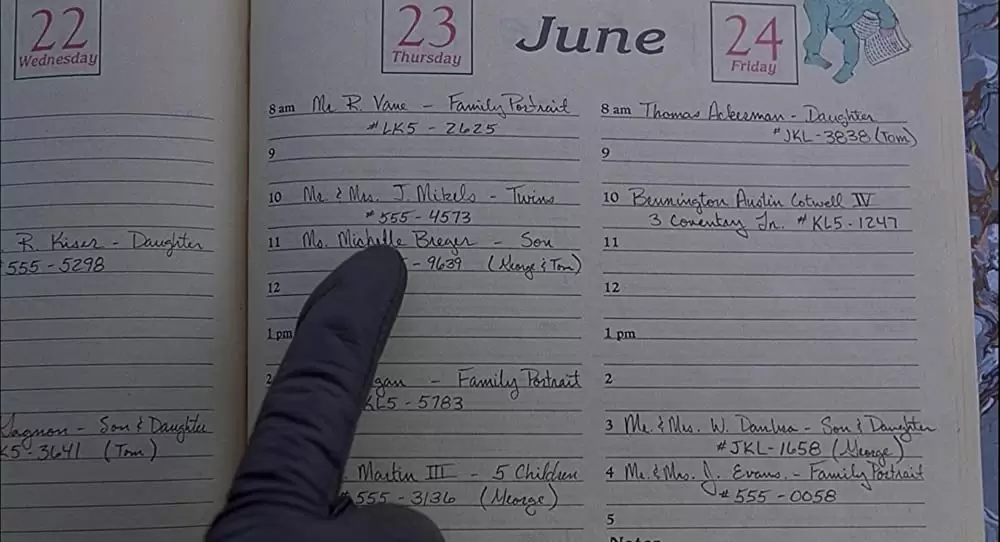 22
Wednesday
R. Kiser - Daughter
555 - 5298
Gagnon - Son & Daughter
K5 - 3641 (Tom)
23
Thursday
June
8 am Mr R. Vane - Family Portrait
#LK5 - 2625
9
10 Mr. & Mrs. J. Mikels - Twins
#555 - 4573
11 Ms. Michelle Breger - Son
- 9639 (George & Tom)
12
1 pm
2 gan - Family Portrait
KL5 - 5783
Martin III - 5 Children
#555 - 3136 (George)
24
Friday
8 am Thomas Ackerman - Daughter
#JKL - 3838 (Tom)
9
10 Bennington Austin Cotwell IV
3 Coventry Ln. #KL5 - 1247
11
12
1 pm
2
3 Mr. & Mrs. W. Danbra - Son & Daughter
#JKL - 1658 (George)
4 Mr. & Mrs. J. Evans. - Family Portrait
#555 - 0058
5
Notes